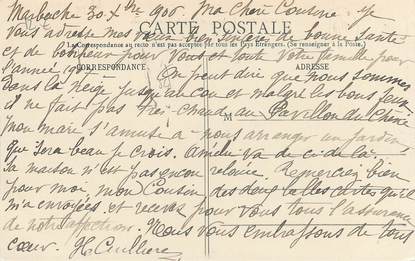 Marbache 30 Xbre 906. Ma chère Cousine. Je
CARTE POSTALE
vous adresse mes vœux bien sincères de bonne santé
La Correspondance au recto n'est pas acceptée par tous les Pays Étrangers. (Se renseigner à la Poste.)
et de bonheur pour vous et toute votre famille pour
l'année
CORRESPONDANCE
ADRESSE
On peut dire que nous sommes
dans la neige jusqu'au cou et malgré les bons feux
il ne fait pas très chaud au Pavillon du Chêne
M
mon mari s'amuse a nous arranger un jardin
que sera beau je crois. Amélie va de ci de là.
Sa maison n'est pas encore relouée. Remerciez bien
pour moi, mon Cousin des deux belles cartes qu'il
m'a envoyées et recevez pour vous tous l'assurance
de notre affection. Nous vous embrassons de tout
cœur. H Cuillière